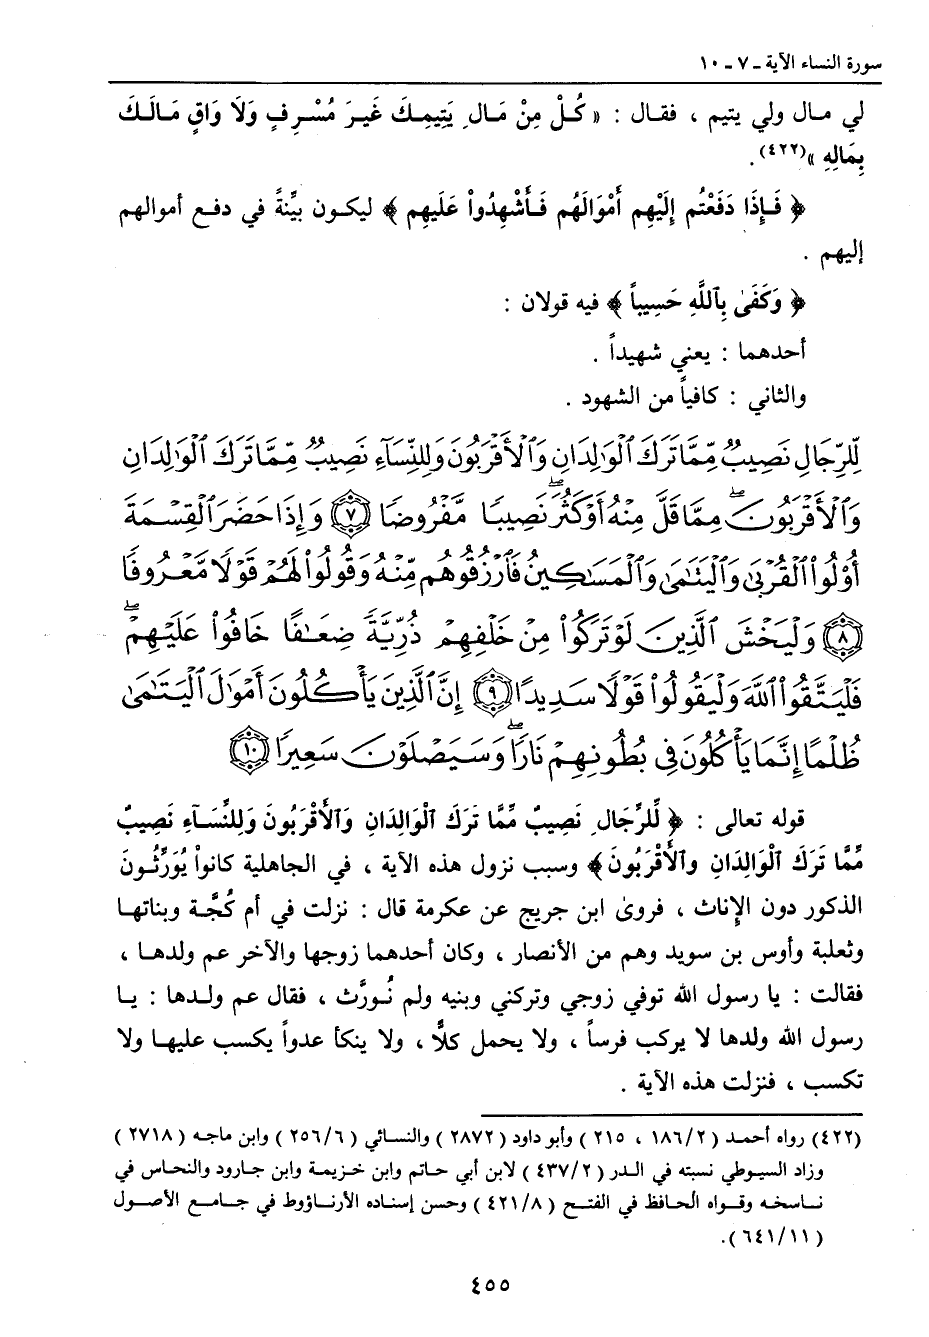 سورة النساء الآية ـ ٧ ـ ١٠
لي مال ولي يتيم ، فقال : « كُلْ مِنْ مَالِ يَتِيمِكَ غَيرَ مُسْرِفٍ وَلَا وَاقٍ مَالَكَ
بِمَالِهِ »(٤٢٢) .
﴿ فَإِذَا دَفَعْتُم إِلَيْهِم أَمْوَالَهُم فَأَشْهِدُواْ عَلَيهِم ﴾ ليكون بيِّنةً في دفع أموالهم
إليهم .
﴿ وَكَفَىٰ بِٱللَّهِ حَسِيباً ﴾ فيه قولان :
أحدهما : يعني شهيداً .
والثاني : كافياً من الشهود .
لِّلرِّجَالِ نَصِيبٌ مِّمَّا تَرَكَ ٱلْوَٰلِدَانِ وَٱلْأَقْرَبُونَ وَلِلنِّسَآءِ نَصِيبٌ مِّمَّا تَرَكَ ٱلْوَٰلِدَانِ
وَٱلْأَقْرَبُونَ مِمَّا قَلَّ مِنْهُ أَوْ كَثُرَۚ نَصِيبًا مَّفْرُوضًا ٧ وَإِذَا حَضَرَ ٱلْقِسْمَةَ
أُوْلُواْ ٱلْقُرْبَىٰ وَٱلْيَتَٰمَىٰ وَٱلْمَسَٰكِينُ فَٱرْزُقُوهُم مِّنْهُ وَقُولُواْ لَهُمْ قَوْلًا مَّعْرُوفًا
٨ وَلْيَخْشَ ٱلَّذِينَ لَوْ تَرَكُواْ مِنْ خَلْفِهِمْ ذُرِّيَّةً ضِعَٰفًا خَافُواْ عَلَيْهِمْ
فَلْيَتَّقُواْ ٱللَّهَ وَلْيَقُولُواْ قَوْلًا سَدِيدًا ٩ إِنَّ ٱلَّذِينَ يَأْكُلُونَ أَمْوَٰلَ ٱلْيَتَٰمَىٰ
ظُلْمًا إِنَّمَا يَأْكُلُونَ فِي بُطُونِهِمْ نَارًاۖ وَسَيَصْلَوْنَ سَعِيرًا ١٠
قوله تعالى : ﴿ لِّلرِّجَالِ نَصِيبٌ مِّمَّا تَرَكَ ٱلْوَالِدَانِ وَٱلأَقْرَبُونَ وَلِلنِّسَآءِ نَصِيبٌ
مِّمَّا تَرَكَ ٱلْوَالِدَانِ وٱلأَقْرَبُونَ ﴾ وسبب نزول هذه الآية ، في الجاهلية كانواْ يُوَرِّثُونَ
الذكور دون الإناث ، فروىٰ ابن جريج عن عكرمة قال : نزلت في أم كُجَّة وبناتها
وثعلبة وأوس بن سويد وهم من الأنصار ، وكان أحدهما زوجها والآخر عم ولدها ،
فقالت : يا رسول الله توفي زوجي وتركني وبنيه ولم نُورَّث ، فقال عم ولدها : يا
رسول الله ولدها لا يركب فرساً ، ولا يحمل كلًّا ، ولا ينكأ عدواً يكسب عليها ولا
تكسب ، فنزلت هذه الآية .
(٤٢٢) رواه أحمد ( ١٨٦/٢ ، ٢١٥ ) وأبو داود ( ٢٨٧٢ ) والنسائي ( ٢٥٦/٦ ) وابن ماجه ( ٢٧١٨ )
وزاد السيوطي نسبته في الدر ( ٤٣٧/٢ ) لابن أبي حاتم وابن خزيمة وابن جارود والنحاس في
ناسخه وقواه الحافظ في الفتح ( ٤٢١/٨ ) وحسن إسناده الأرناؤوط في جامع الأصول
( ٦٤١/١١ ) .
٤٥٥